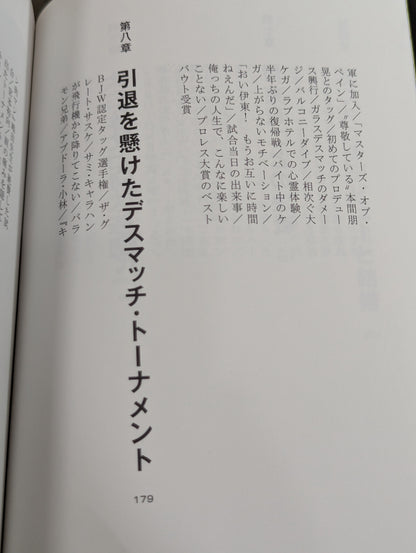 軍に加入／「マスターズ・オブ・
ペイン」／〝尊敬している〟本間朋
晃とのタッグ／初めてのプロデュー
ス興行／ガラスデスマッチのダメー
ジ／バルコニーダイブ／相次ぐ大
ケガ／ラブホテルでの心霊体験／
半年ぶりの復帰戦／バイト中のケ
ガ／上がらないモチベーション／
「おい伊東！　もうお互いに時間
ねえんだ」／試合当日の出来事／
俺っちの人生で、こんなに楽しい
ことない／プロレス大賞のベスト
バウト受賞
第八章
引退を懸けたデスマッチ・トーナメント
BJW認定タッグ選手権／ザ・グ
レート・サスケ／サミ・キャラハン
が飛行機から降りてこない／バラ
モン兄弟／アブドーラ・小林／『キ
179